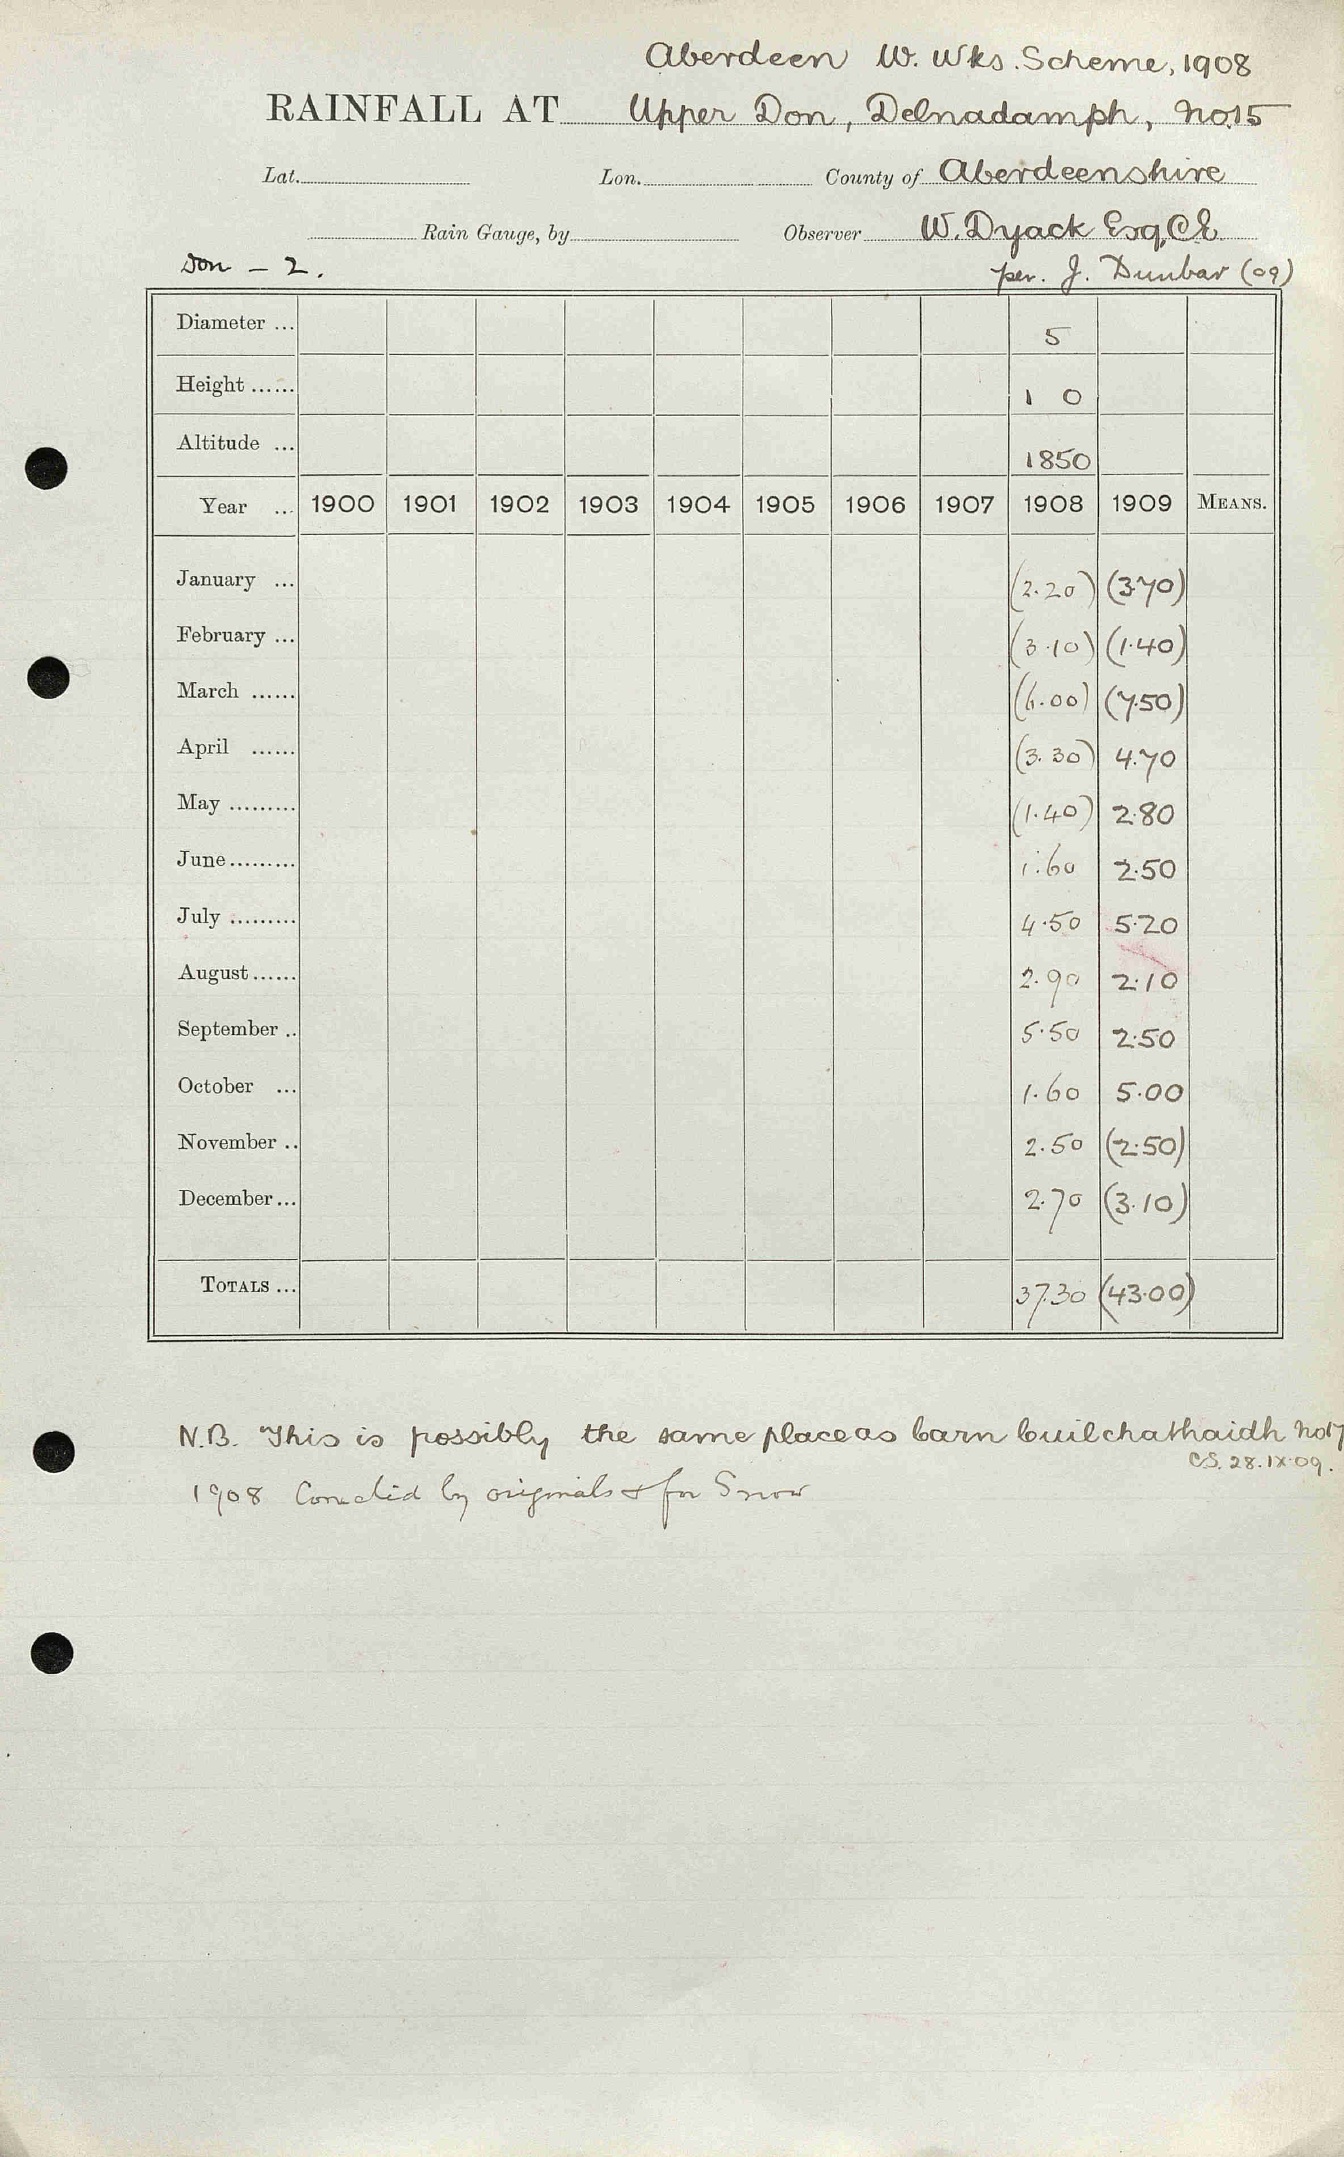 Aberdeen W. Wks. Scheme, 1908
RAINFALL AT Upper Don, Delnadamph, No.15
Lat. Lon. County of Aberdeenshire
Rain Gauge, by Observer W. Dyack Esq, C.E.
Don - 2. per. J. Dunbar (09)
Diameter ... 5
Height ...... 1 0
Altitude ... 1850
Year ... 1900 1901 1902 1903 1904 1905 1906 1907 1908 1909 MEANS.
January ... (2.20) (3.70)
February ... (3.10) (1.40)
March ...... (6.00) (7.50)
April ...... (3.30) 4.70
May ......... (1.40) 2.80
June ......... 1.60 2.50
July ......... 4.50 5.20
August ...... 2.90 2.10
September .. 5.50 2.50
October ... 1.60 5.00
November .. 2.50 (2.50)
December ... 2.70 (3.10)
TOTALS ... 37.30 (43.00)
N.B. This is possibly the same place as barn builchathaidh No17
C.S. 28.IX.09.
1908 Corrected by originals & for Snow